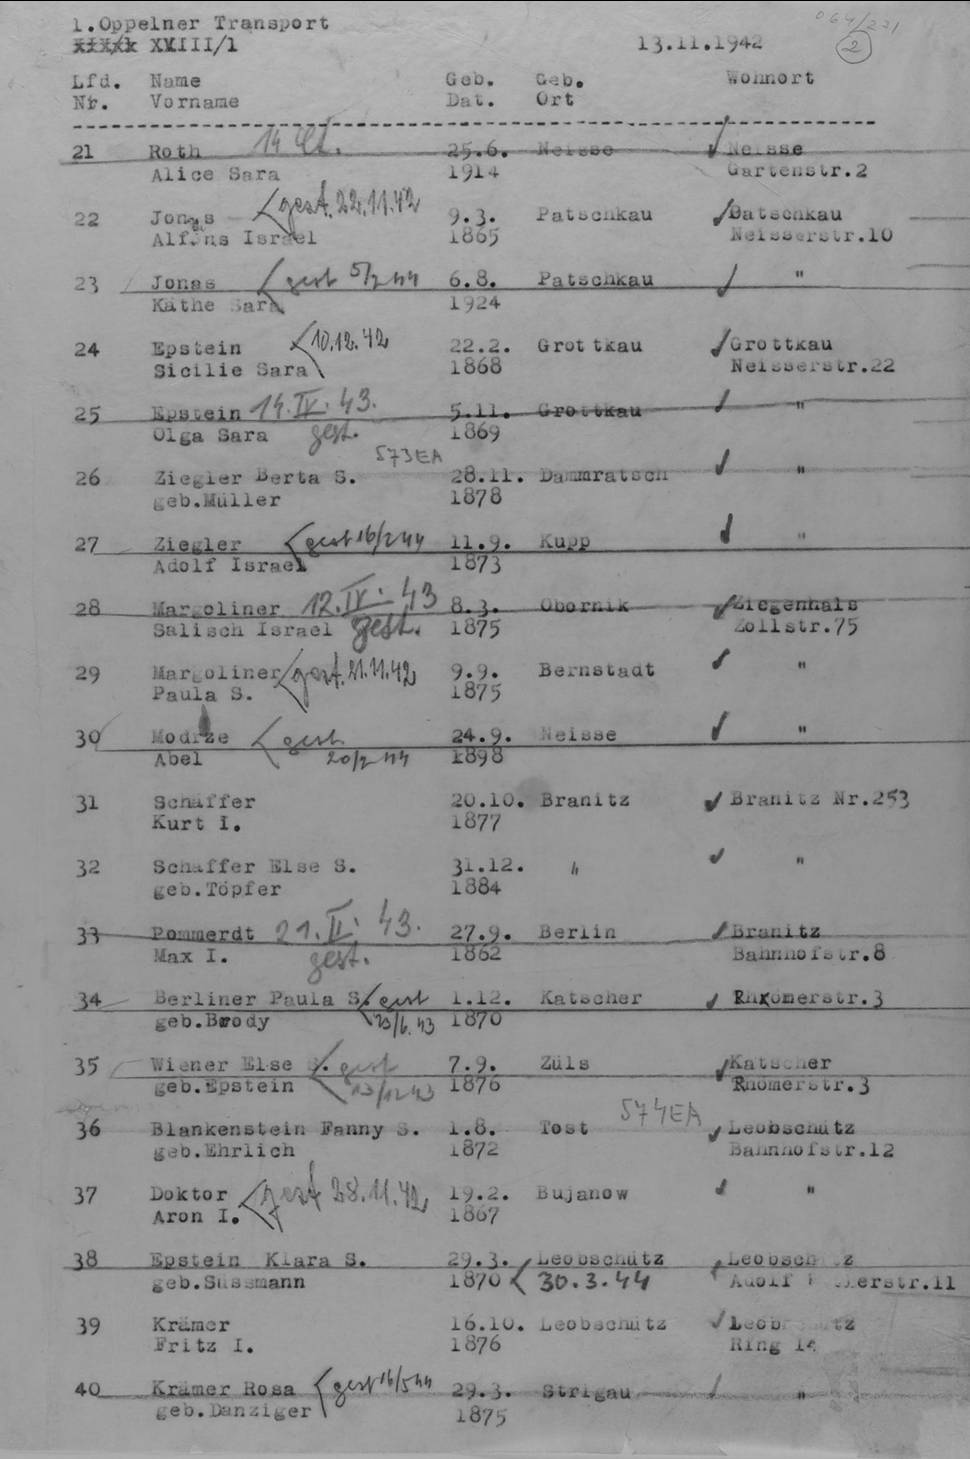 064/221
1.Oppelner Transport
XVIII/1 13.11.1942 2
Lfd. Name Geb. Geb. Wohnort
Nr. Vorname Dat. Ort
21 Roth 14 25.6. Neisse Neisse
Alice Sara 1914 Gartenstr.2
22 Jonas gest. 22.11.42 9.3. Patschkau Patschkau
Alfons Israel 1865 Neisserstr.10
23 Jonas gest 5/2 44 6.8. Patschkau "
Käthe Sara 1924
24 Epstein 10.12.42 22.2. Grottkau Grottkau
Sicilie Sara 1868 Neisserstr.22
25 Epstein 14.IV.43. 5.11. Grottkau "
Olga Sara gest. 1869
573EA
26 Ziegler Berta S. 28.11. Dammratsch "
geb.Müller 1878
27 Ziegler gest 16/2 44 11.9. Kupp "
Adolf Israel 1873
28 Margoliner 12.IV.43 8.3. Obornik Ziegenhals
Salisch Israel gest. 1875 Zollstr.75
29 Margoliner gest. 21.11.42 9.9. Bernstadt "
Paula S. 1875
30 Modrze gest 24.9. Neisse "
Abel 20/2 44 1898
31 Schäffer 20.10. Branitz Branitz Nr.253
Kurt I. 1877
32 Schäffer Else S. 31.12. " "
geb.Töpfer 1884
33 Pommerdt 21.II.43. 27.9. Berlin Branitz
Max I. gest. 1862 Bahnhofstr.8
34 Berliner Paula S. gest 1.12. Katscher Rhxomerstr.3
geb.Brody 23/6.43 1870
35 Wiener Else gest 7.9. Züls Katscher
geb.Epstein 13/12 43 1876 Rhomerstr.3
574EA
36 Blankenstein Fanny S. 1.8. Tost Leobschütz
geb.Ehrlich 1872 Bahnhofstr.12
37 Doktor gest 28.11.42 19.2. Bujanow "
Aron I. 1867
38 Epstein Klara S. 29.3. Leobschütz Leobschütz
geb.Süssmann 1870 30.3.44 Adolf erstr.11
39 Krämer 16.10. Leobschütz Leobschütz
Fritz I. 1876 Ring
40 Krämer Rosa gest 16/5 44 29.3. Strigau "
geb.Danziger 1875